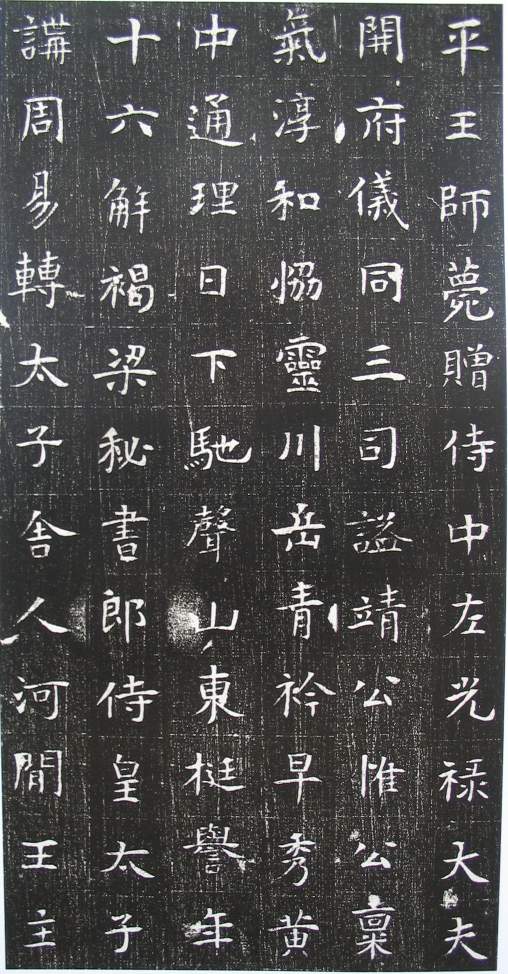 平王師薨贈侍中左光祿大夫
開府儀同三司謚靖公惟公稟
氣淳和惱靈川岳青衿早秀黄
中通理日下馳聲山東梃譽年
十六解褐梁秘書郎侍皇太子
講周易轉太子舎人河閒王主